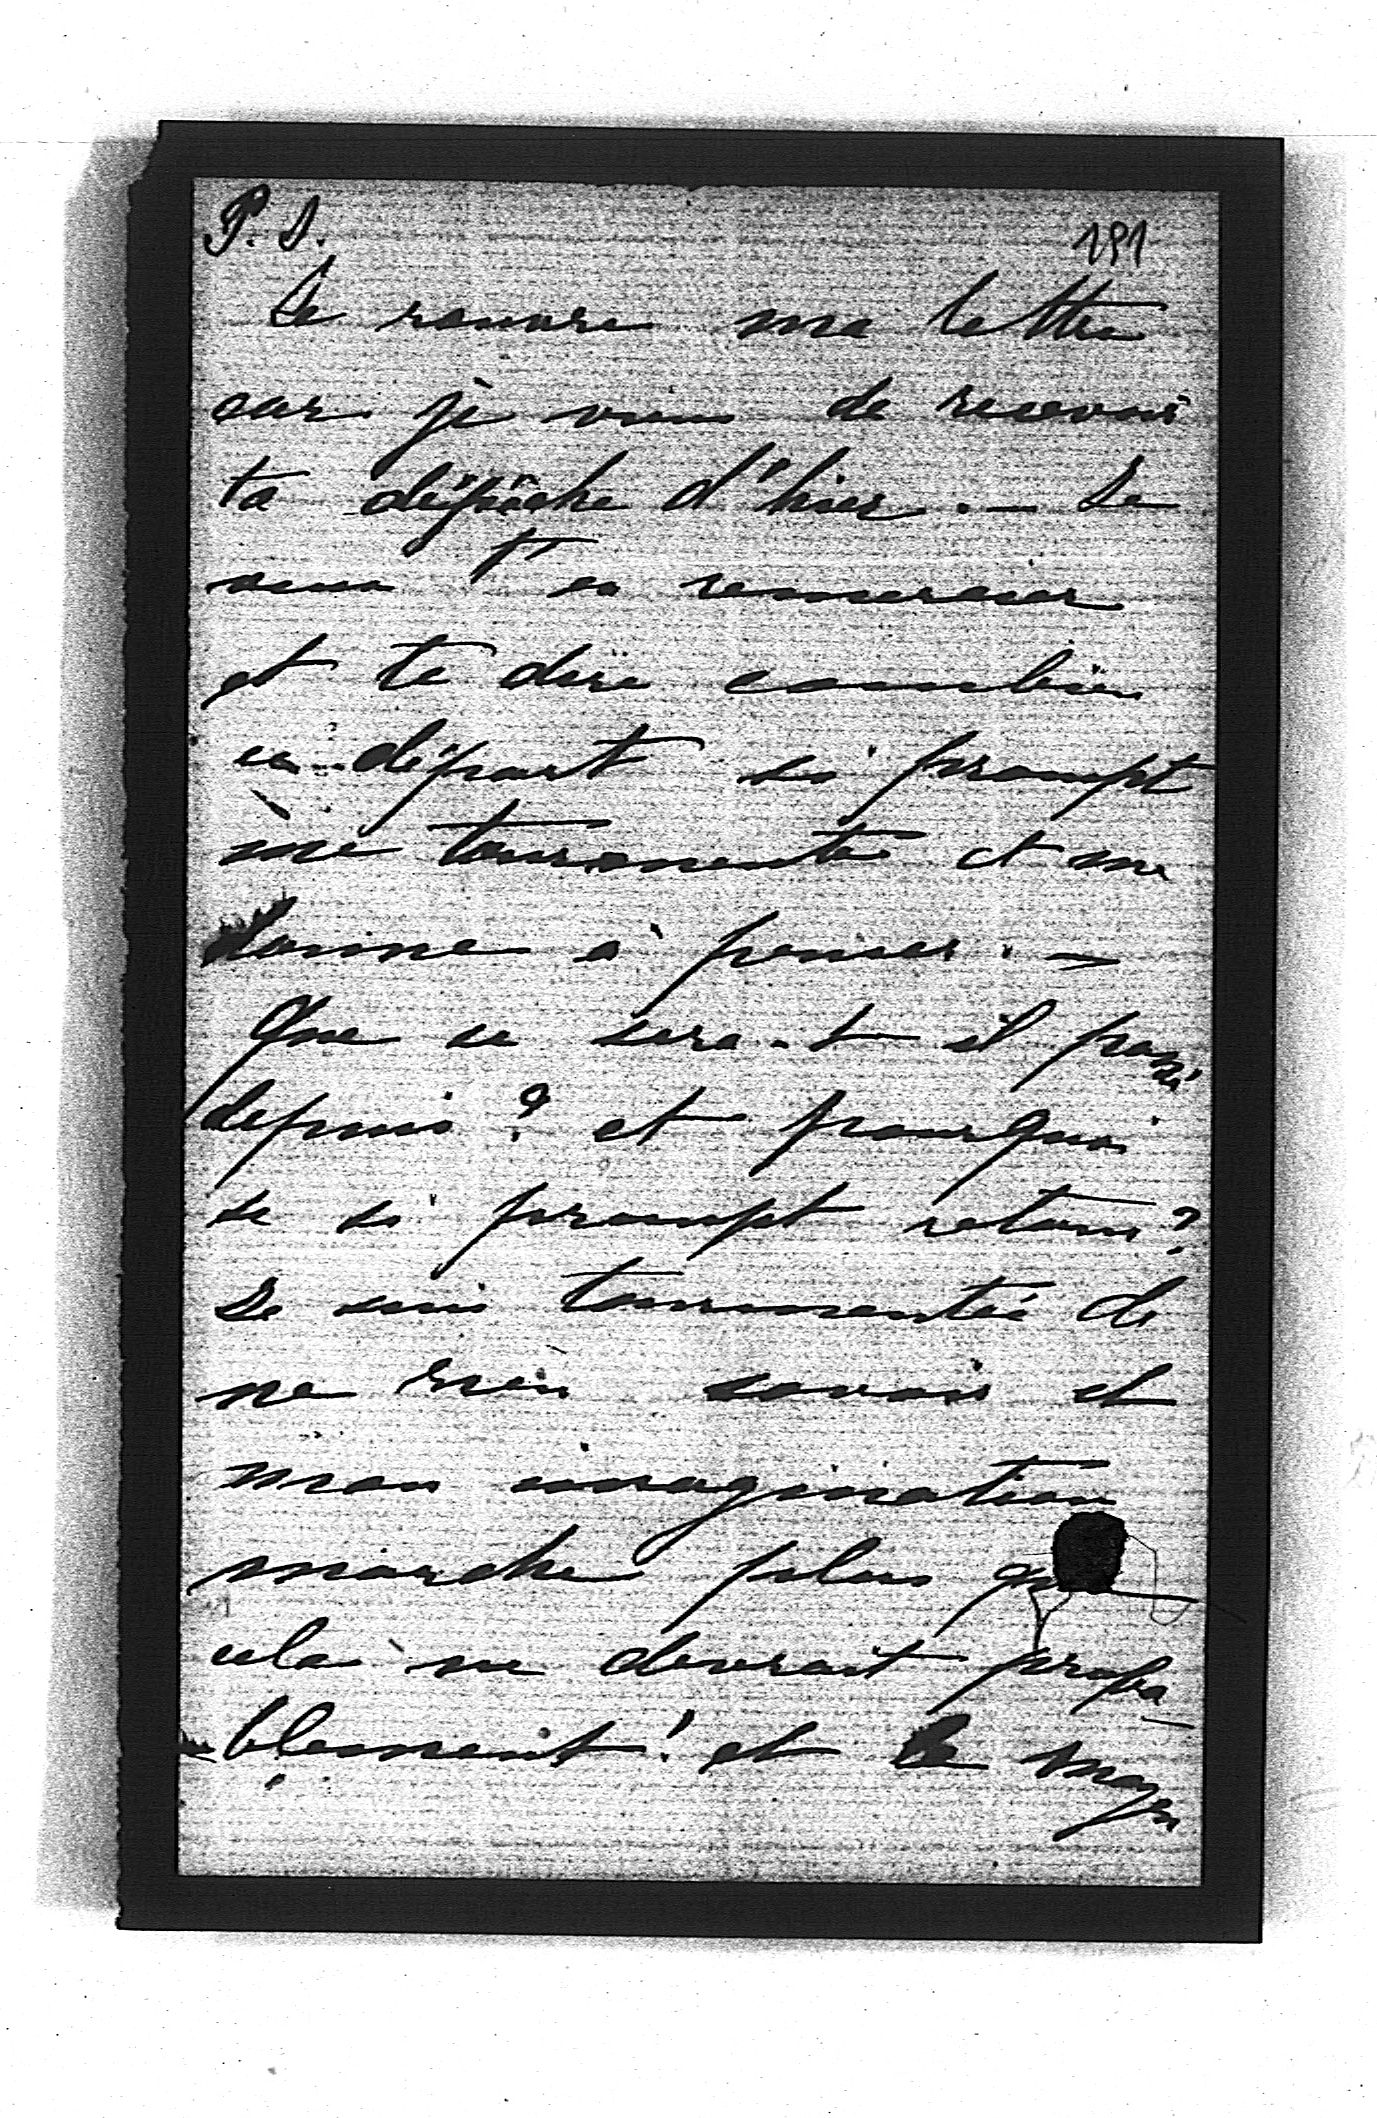 P. S.
191
Je rouvre ma lettre
car je viens de recevoir
ta dépêche d'hier. — Je
veux t'en remercier
et te dire combien
ce départ si prompt
me tourmente et me
donne à penser. —
Que se sera-t-il passé
depuis? et pourquoi
se si prompt retour?
Je suis tourmentée de
ne rien savoir et
mon imagination
marche plus que
cela ne devrait proba-
blement! et le moyen